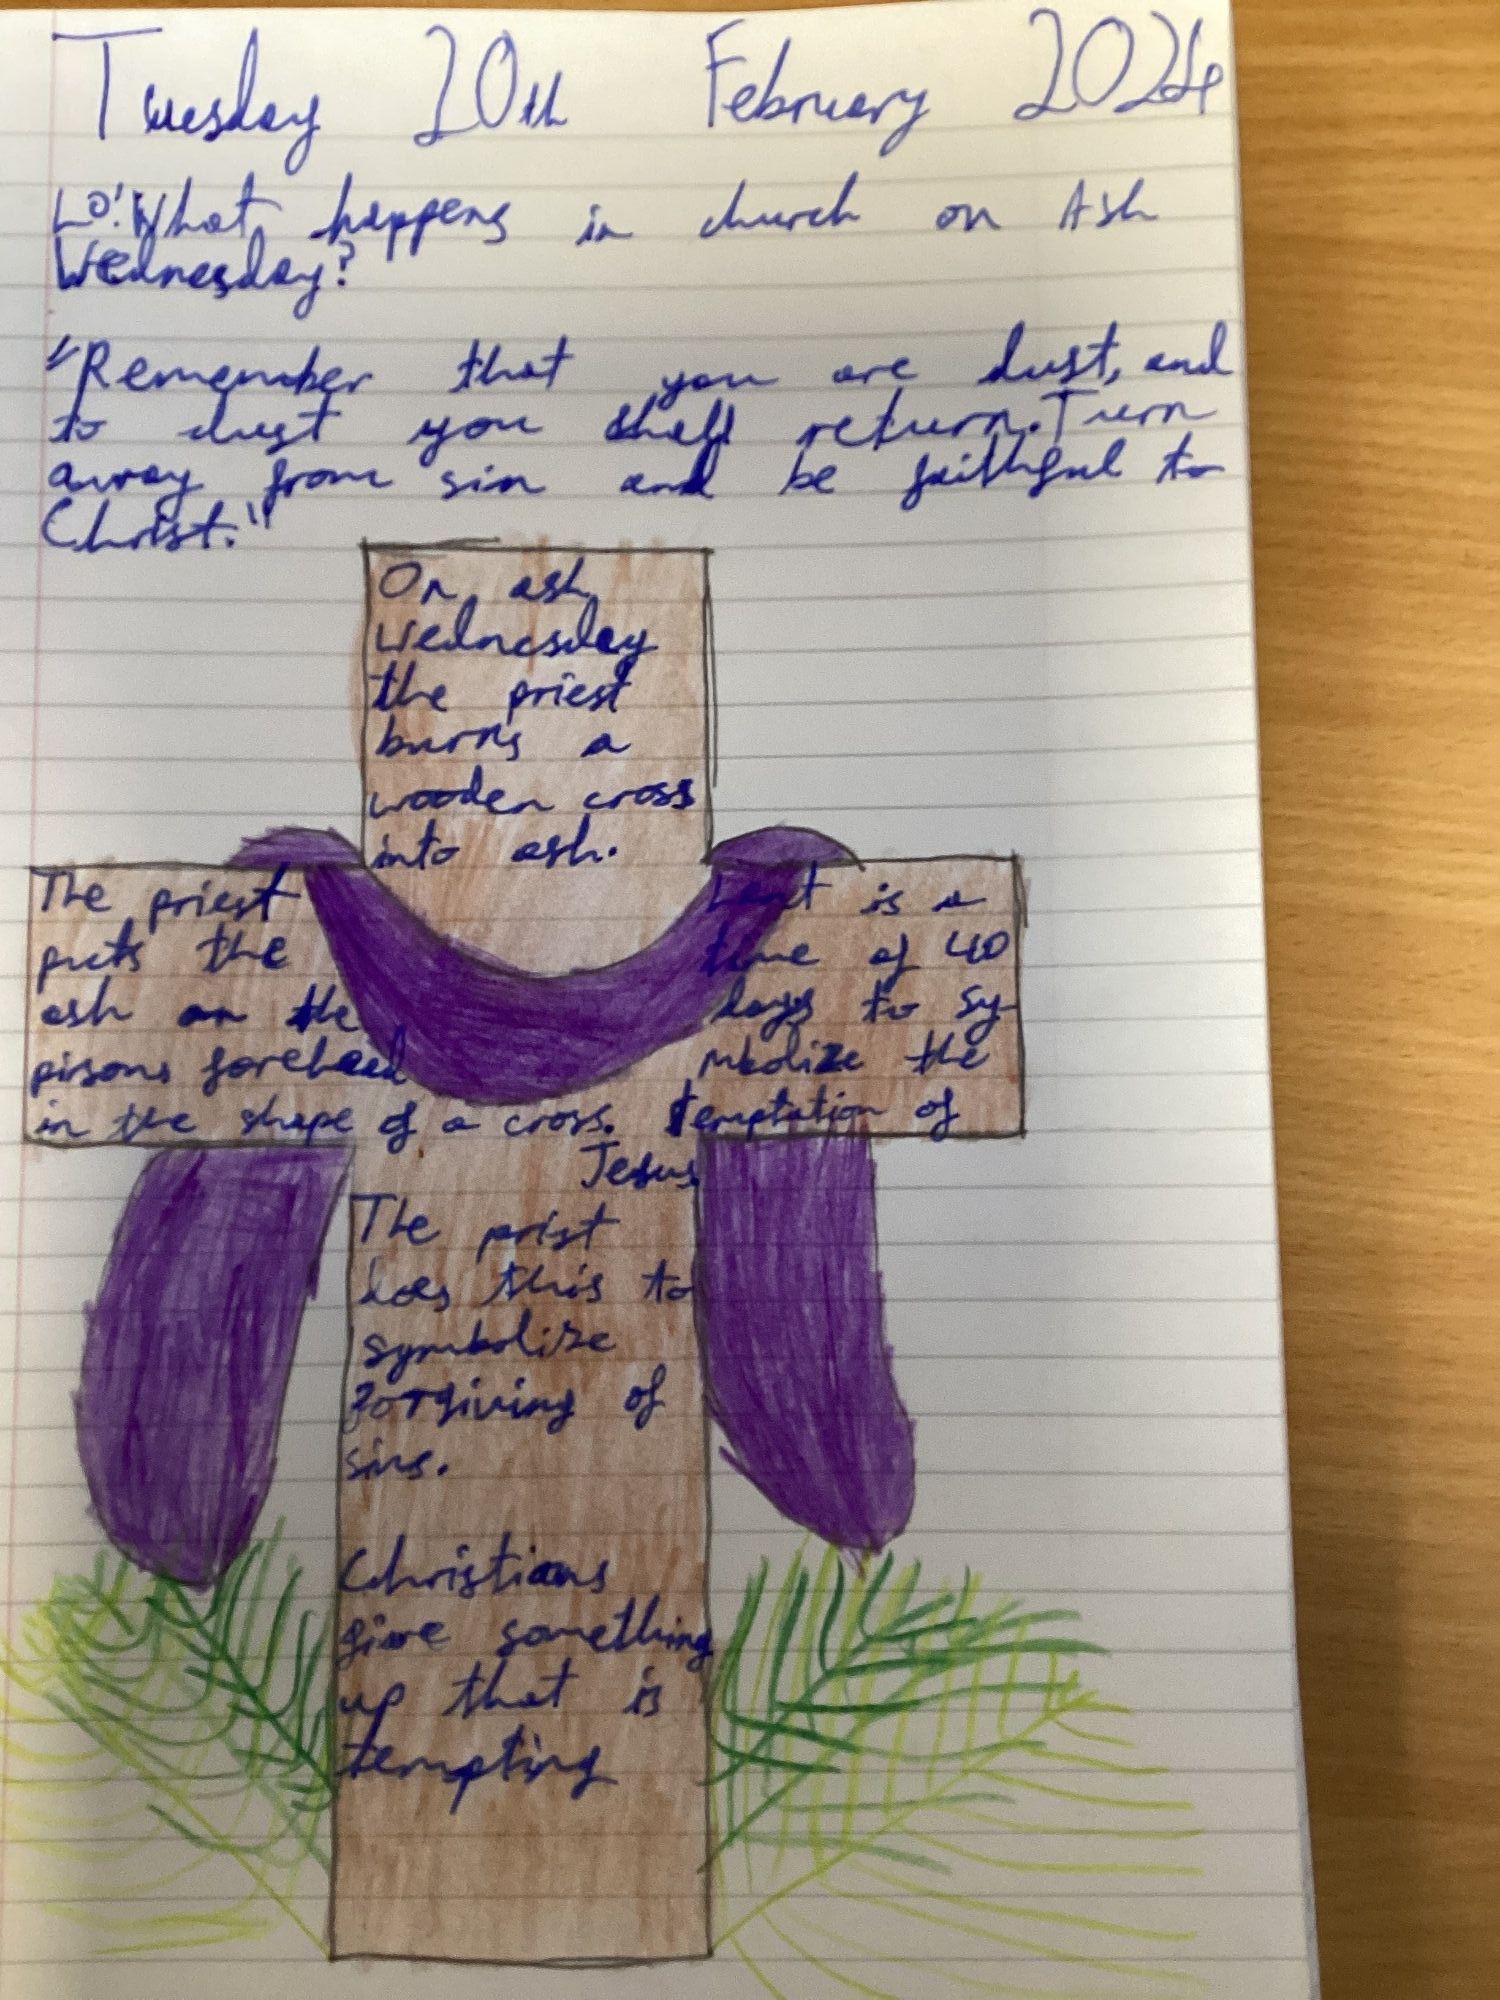 Tuesday 20th February 2024
LO: What happens in church on Ash
Wednesday?
"Remember that you are dust, and
to dust you shall return. Turn
away from sin and be faithful to
Christ."
On ash
Wednesday
the priest
burns a
wooden cross
into ash.
The priest
puts the
ash on the
pisons forehead
in the shape of a cross.
Lent is a
time of 40
days to sy-
mbolize the
temptation of
Jesus.
The prist
does this to
symbolise
forgiving of
sins.
Christians
give something
up that is
tempting